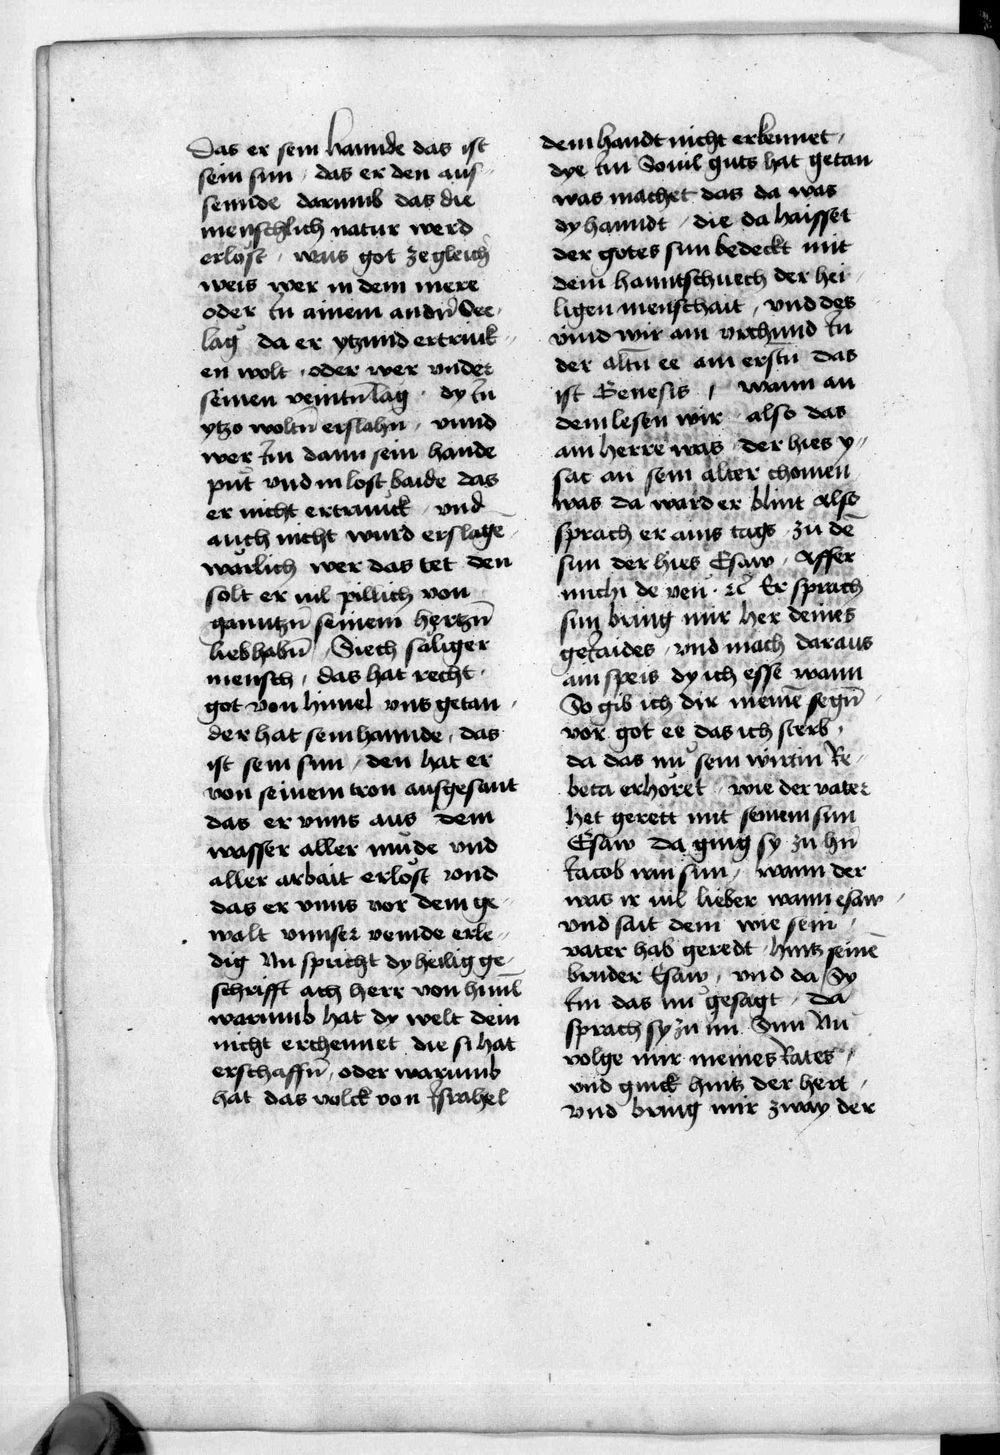 Das er sein hannde das ist
sein sun · das er den aus⸗
sennde darumb das die
menschlich natur werd
erlöst · wais got zegleich
weis wer in dem mere
oder in ainem andn̄ See⸗
lag da er ytzund ertrink⸗
en wolt · oder wer vnder
seinen veintn̄ lag · dy in
ytzo woltn̄ erslahn · vnnd
wer im dann sein hande
püt vnd in lost baide das
er nicht ertrannck · vnd
auch nicht wurd erslagē
wärlich wer das tet den
solt er vil pillich von
ganntzn̄ seinem hertzn̄
liebhabn̄ · Siech säliger
mensch · das hat recht ·
got von himel vns getan ·
der hat sein hannde · das
ist sein sun · den hat er
von seinem tron ausgesant
das er vnns aus dem
wasser aller müde vnd
aller arbait erlöst vnd
das er vnns vor dem ge⸗
walt vnnser veinde erle⸗
dig Nu spricht dy heilig ge⸗
schrifft ach herr von himl̄
warumb hat dy welt dein
nicht erchennet die si hat
erschaffn̄ · oder warumb
hat das volck von Israhel
dein handt nicht erkennet ·
dye im Souil guts hat getan
was machet das da was
dy hanndt · die da haisset
der gotes sun bedeckt mit
dem hanntschuech der hei⸗
ligen menschait · vnd des
vind wir ain vrchund in
der altn̄ ee am erstn̄ das
ist Genesis · wann an
dem lesen wir also das
ain herre was der hies y⸗
sac an sein alter chomen
was da ward er blint Also
sprach er ains tags · zu dē
sun der hies Esaw · Affer
michi de ven · ⁊c̄ Er sprach
sun bring mir her deines
geiaides · vnd mach daraus
ain speis dy ich esse wann
So gib ich dir meinē segn̄
vor got ee das ich sterb ·
da das nu sein wirtin Re⸗
beca erhöret · wie der vater
het gerett mit seinem sun
Esaw da ging sy zu hn̄
Iacob irm sun · wann der
was ir vil lieber wann esaw ·
vnd sait dem wie sein ·
vater hab geredt · hintz seinē
bruder Esaw · vnd da Sy
im das nu gesagt · da
sprach sy zu im Sun Nu
volge mir meines Rates ·
vnd ginck hintz der hert ·
vnd bring mir zway der